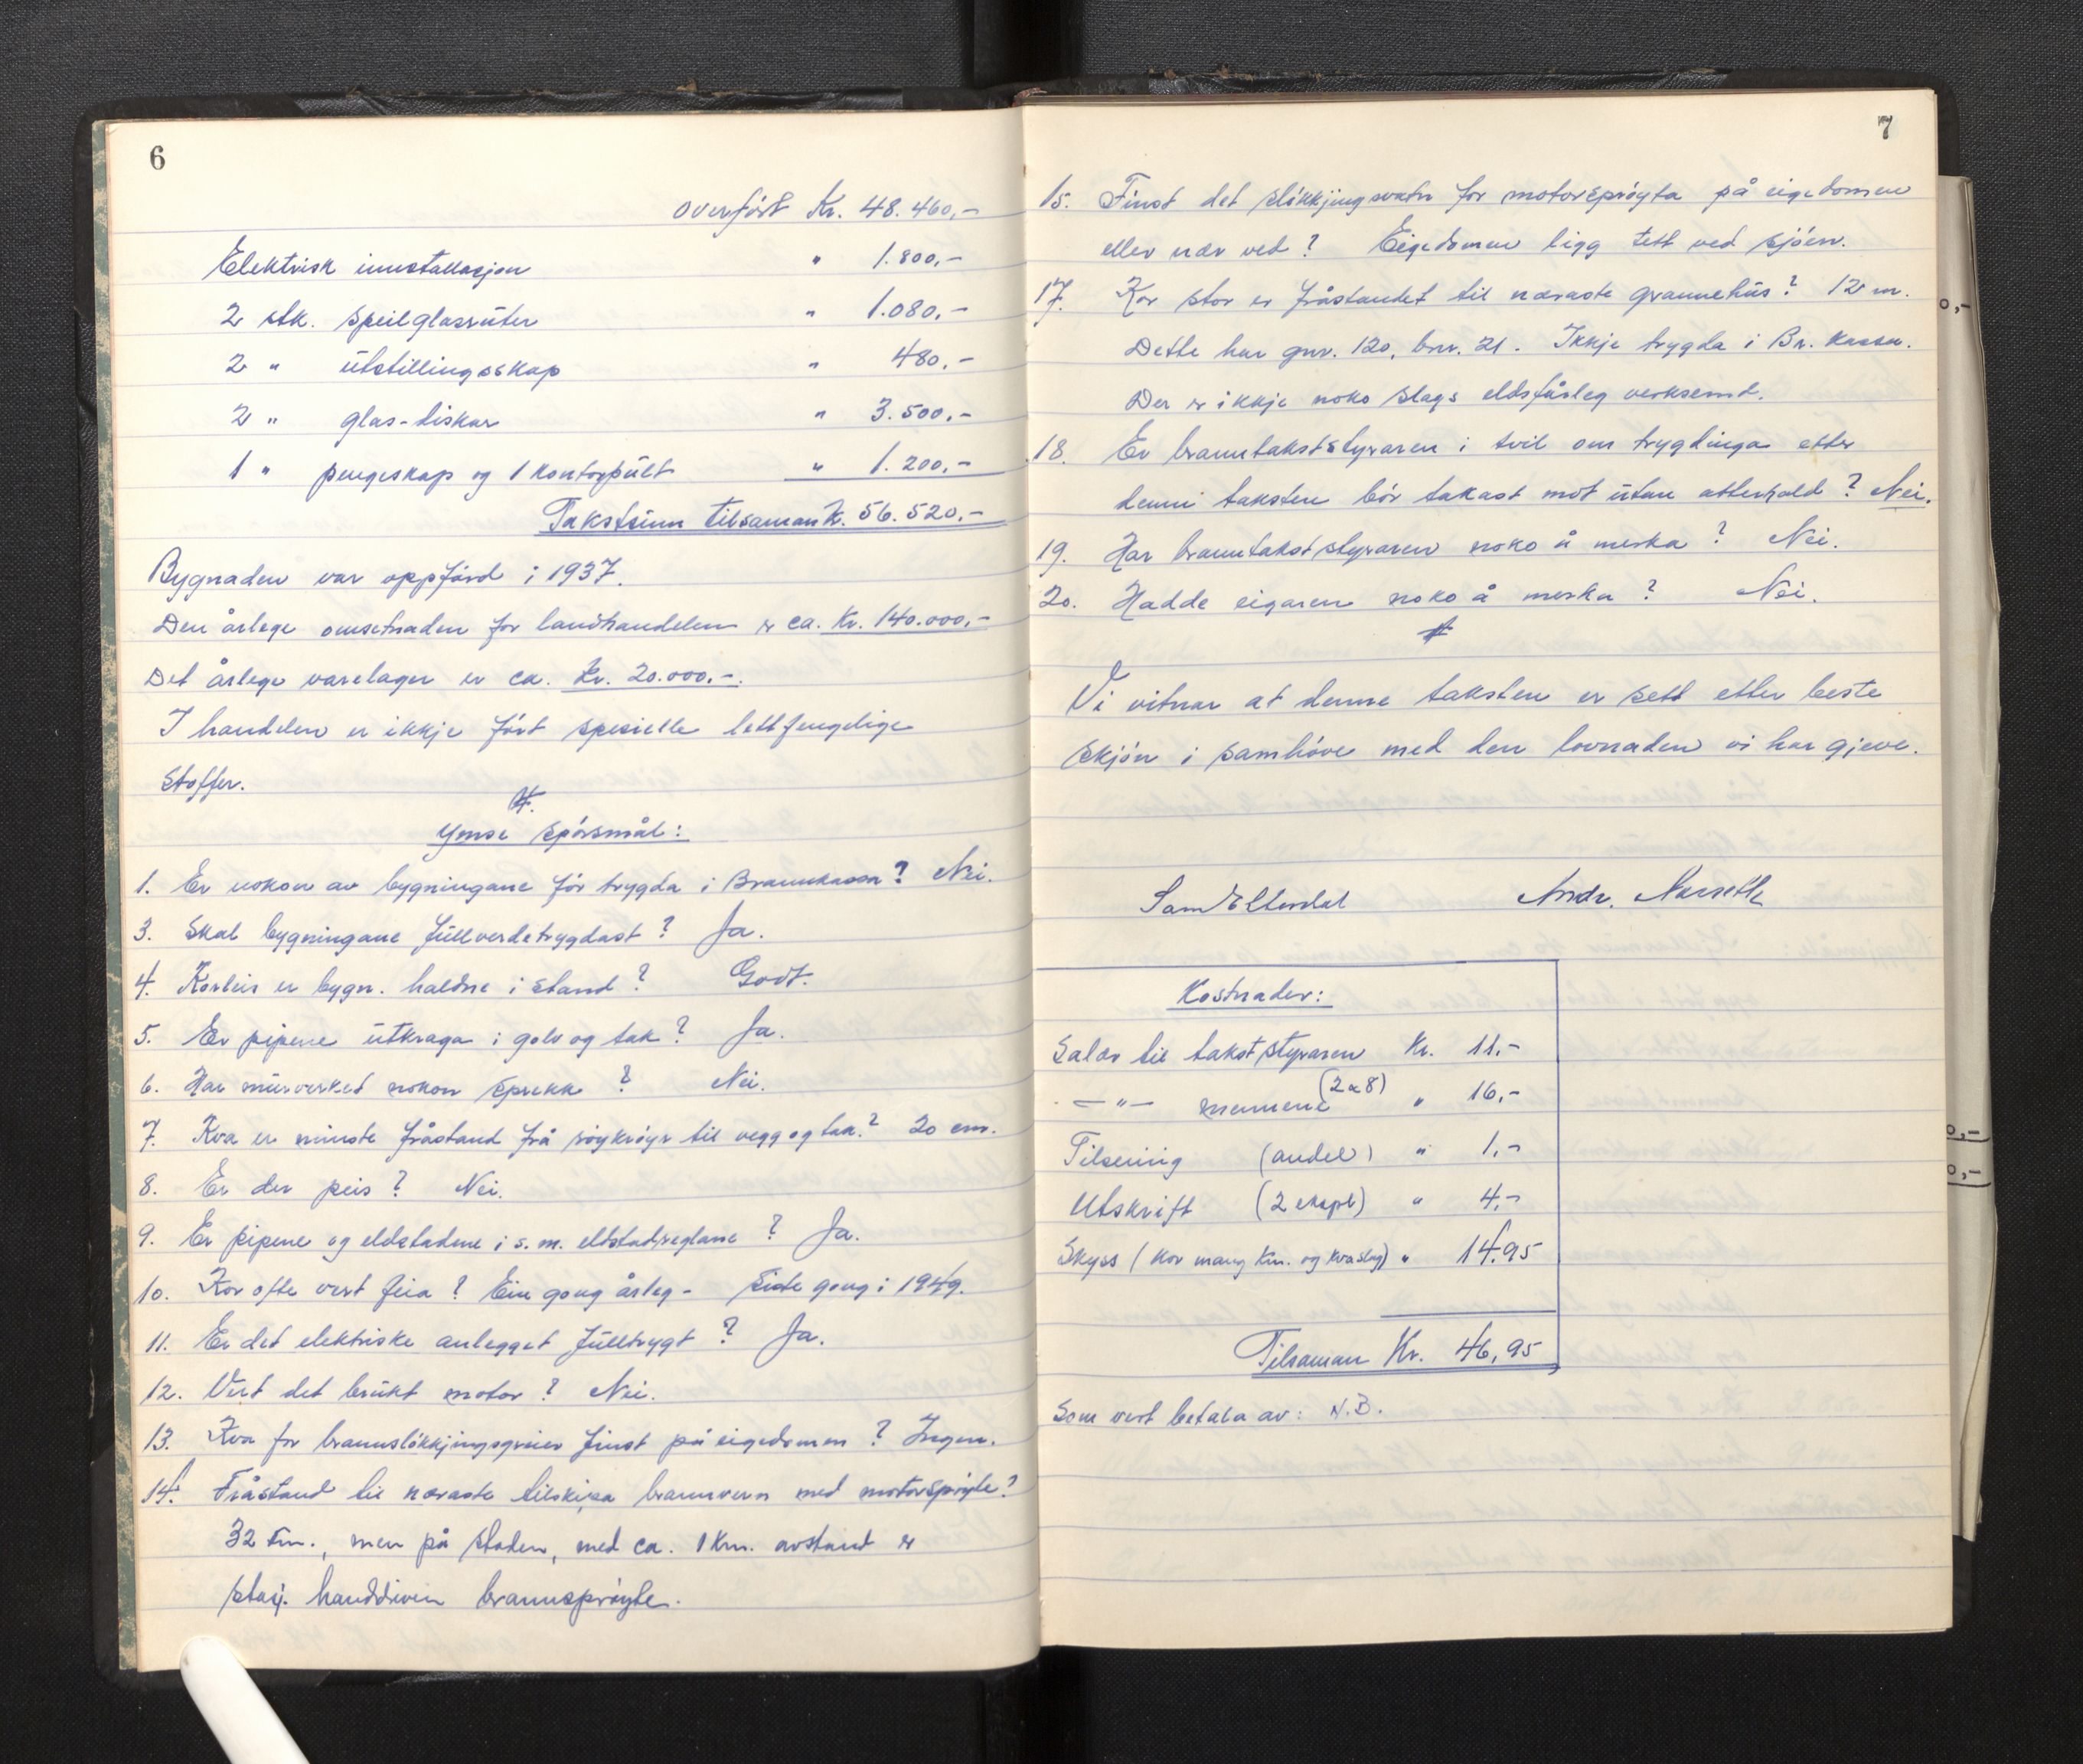 6
overført Kr. 48.460,-
Elektrisk innstallasjon " 1.800,-
2 stk. speilglasrúter " 1.080,-
2 " útstillingsskap " 480,-
2 " glas-diskar " 3.500,-
1 " pengeskap og 1 kontorpúlt " 1.200,-
Takstsum tilsaman kr. 56.520,-
Bygnaden var oppførd i 1937.
Den årlege omsetnaden for landhandelen er ca. Kr. 140.000,-
Det årlege varelager er ca. Kr. 20.000.-.
I handelen er ikkje ført spesielle lettfengelige
stoffer.
Ymse spørsmål:
1. Er nokon av bygningane før trygda i Brannkassa? Nei.
3. Skal bygningane fúllverdetrygdast? Ja.
4. Korleis er bygn. haldne i stand? Godt.
5. Er pipene útkraga i golv og tak? Ja.
6. Har múrverket nokon sprekk? Nei.
7. Kva er minste fråstand frå røykrøyr til vegg og tak? 20 cm.
8. Er der peis? Nei.
9. Er pipene og eldstadene i s. m. eldstadreglane? Ja.
10. Kor ofte vert feia? Ein gong årleg - Siste gong i 1949.
11. Er det elektriske anlegget fúlltrygt? Ja.
12. Vert det brúkt motor? Nei.
13. Kva for brannsløkkjingsgreier finst på eigedomen? Ingen.
14. Fråstand til næraste tilskipa brannvern med motorsprøyte?
32 km., men på staden, med ca. 1 km. avstand er
stasj. handdriven brannsprøyte.
7
15. Finst det sløkkjingsvatn for motorsprøyta på eigedomen
eller nær ved? Eigedomen ligg tett ved sjøen.
17. Kor stor er fråstandet til næraste grannehús? 12 m.
Dette har gnr. 120, bnr. 21. Ikkje trygda i Br. kassa.
Der er ikkje noko slags eldsfårleg verksemd.
18. Er branntakststyraren i tvil om trygdinga etter
denne taksten bør takast mot útan atterhald? Nei.
19. Har branntakststyraren noko å merka? Nei.
20. Hadde eigaren noko å merka? Nei.
Vi vitnar at denne taksten er sett etter beste
skjøn i samhøve med den lovnaden vi har gjeve.
Sam Eltvedal Andr. Norseth
Kostnader:
Salær til takststyraren Kr. 11,-
-"- mennene (2 a 8) " 16,-
Tilsening (andel) " 1,-
Utskrift (2 ekspl) " 4,-
Skyss (kor mang km. og kva slag) " 14.95
Tilsaman Kr. 46,95
Som vert betala av: N.B.